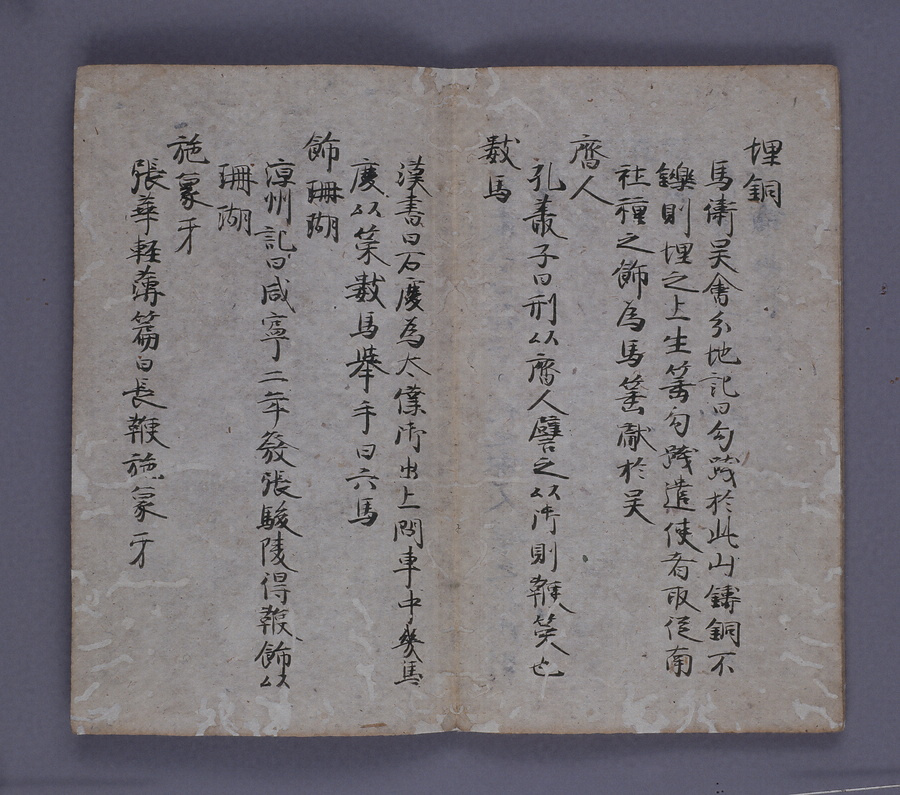 埋銅
馬衛吴會分地記曰勾踐於此山鑄銅不
鑠則埋之上生箠勾踐遣使者取從南
社種之飾為馬箠獻於吴
齊人
孔叢子曰刑以齊人譬之以御則鞭筴也
數馬
漢書曰石慶為太僕御出上問車中幾馬
慶以策數馬舉手曰六馬
飾珊瑚
涼州記曰咸寧二年發張駿陵得鞭飾以
珊瑚
施象牙
張華輕薄篇曰長鞭施象牙